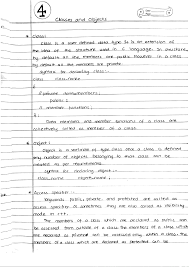 4
Classes and Objects
* Class:
Class is a user defined data type. It is an extension
of the idea of the structure used in C language. In structure,
by default all the members are public however in a class
by default all the members are private.
Syntax for declaring class:
class class_name
{ private data members;
public :
member functions;
};
Data members and member functions of a class are
collectively called as member of a class.
* Object :
Object is a variable of type class. Once a class is defined
any number of objects belonging to that class can be
created, as per requirements.
Syntax for declaring object:
class_name object-name;
* Access Specifier:
Keywords public, private, and protected are called as
access specifier or sometimes they are also called as visibility
mode in c++.
The members of a class which are declared as public can be
accessed from outside of a class. The members of a class which
are declared as private can be accessed only within a class.
The members of a class which are declared as protected can be